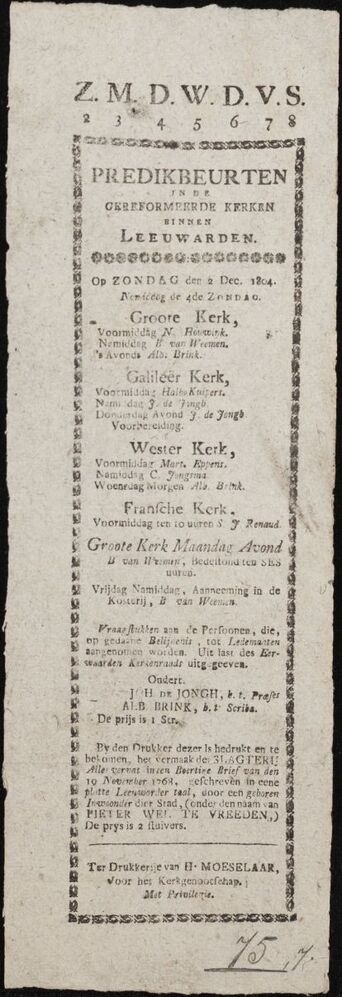 Z. M. D. W. D. V. S.
2 3 4 5 6 7 8
PREDIKBEURTEN
IN DE
GEREFORMEERDE KERKEN
BINNEN
LEEUWARDEN.
Op ZONDAG den 2 Dec. 1804.
Namiddag de 4de ZONDAG.
Groote Kerk,
Voormiddag N. Houwink.
Namiddag B van Weemen.
's Avonds Alb. Brink.
Galileër Kerk,
Voormiddag Halbo Kuipers.
Namiddag J. de Jongh.
Donderdag Avond J. de Jongh
Voorbereiding.
Wester Kerk,
Voormiddag Mart. Eppens.
Namiddag C. Jongsma.
Woensdag Morgen Alb. Brink.
Fransche Kerk.
Voormiddag ten 10 uuren S. J Renaud.
Groote Kerk Maandag Avond
B van Weemen, Bedestond ten SES
uuren.
Vrijdag Namiddag, Aanneeming in de
Kosterij, B van Weemen.
Vraagstukken aan de Persoonen, die,
op gedaane Belijdenis, tot Ledemaaten
aangenomen worden. Uit last des Eer-
waarden Kerkenraads uitgegeeven.
Ondert.
JOH. DE JONGH, h. t. Præses
ALB. BRINK, h. t. Scriba.
De prijs is 1 Str.
By den Drukker dezer is gedrukt en te
bekomen, het vermaak der SLAGTERIJ
Alles vervat in een Boertige Brief van den
19 November 1768, geschreven in eene
platte Leeuworder taal, door een geboren
Inwoonder dier Stad, (onder den naam van
PIETER WEL TE VREEDEN,)
De prys is 2 stuivers.
Ter Drukkerije van H. MOESELAAR,
Voor het Kerkgenootschap.
Met Privilegie.
75
7.